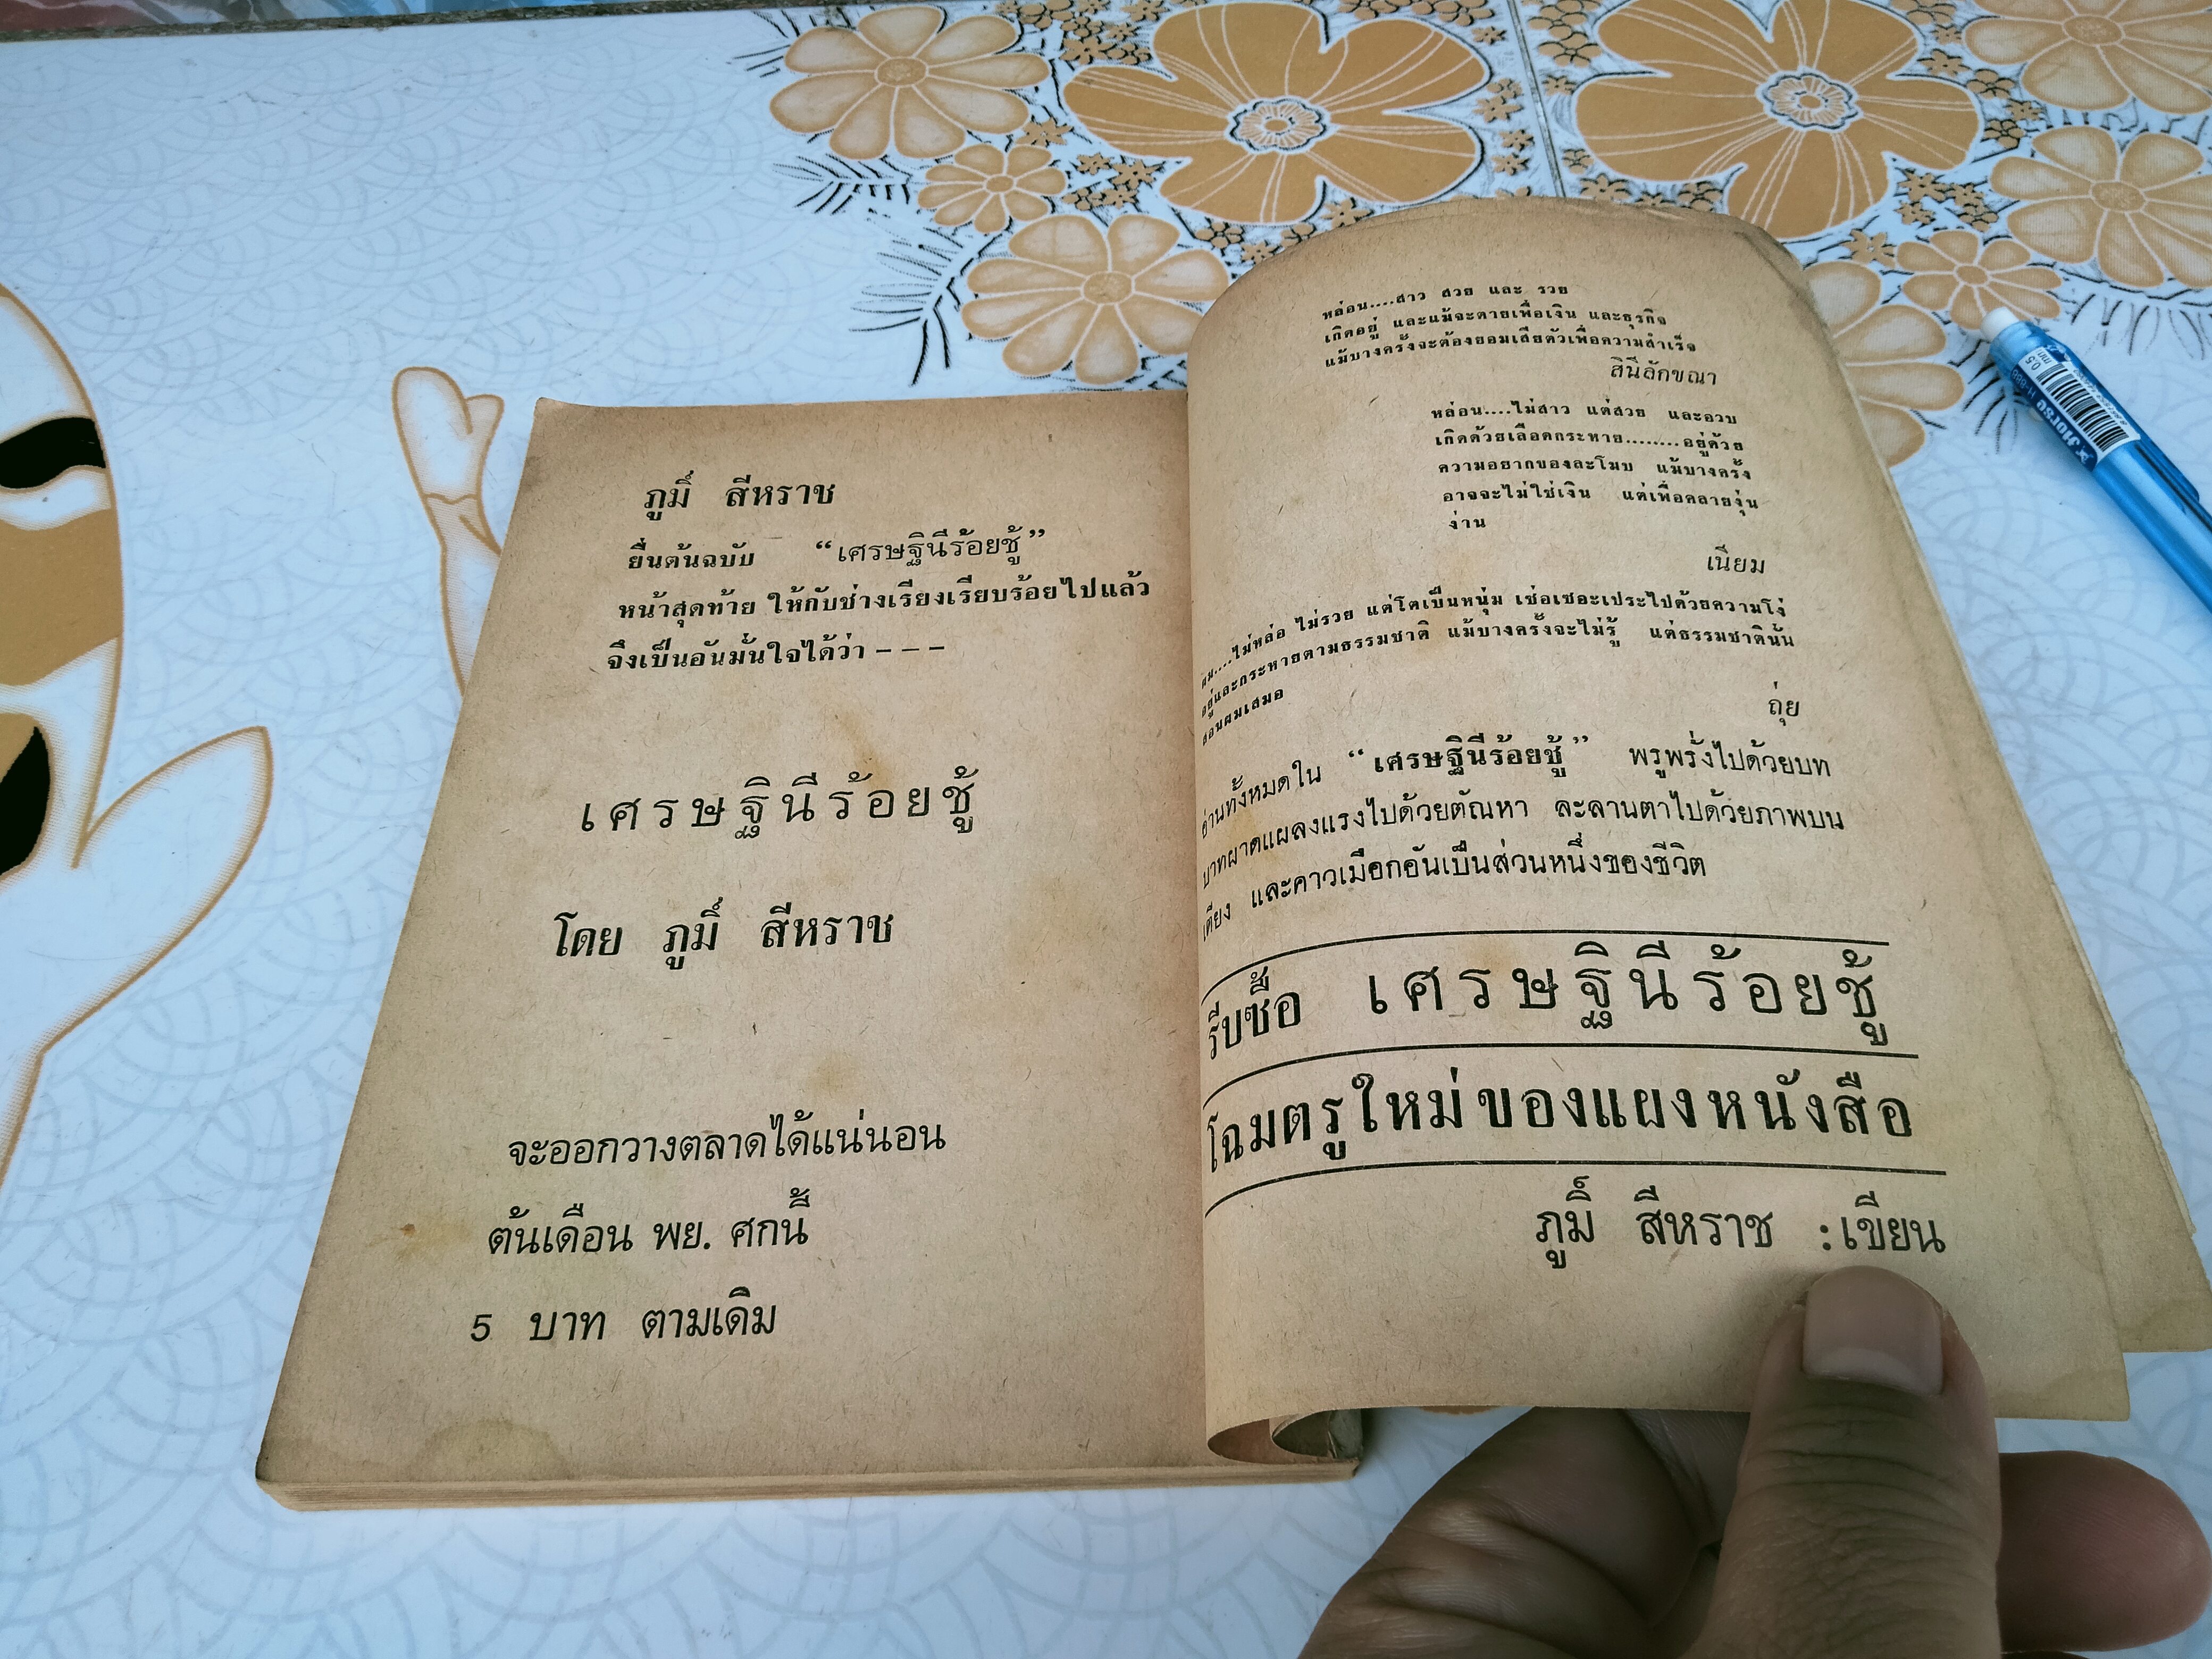 ภูมิ์ สีหราช
ยื่นต้นฉบับ “เศรษฐินีร้อยชู้”
หน้าสุดท้าย ให้กับช่างเรียงเรียบร้อยไปแล้ว
จึงเป็นอันมั่นใจได้ว่า – – –
เศรษฐินีร้อยชู้
โดย ภูมิ์ สีหราช
จะออกวางตลาดได้แน่นอน
ต้นเดือน พย. ศกนี้
5 บาท ตามเดิม
หล่อน....สาว สวย และ รวย
เกิดอยู่ และแม้จะตายเพื่อเงิน และธุรกิจ
แม้บางครั้งจะต้องยอมเสียตัวเพื่อความสำเร็จ
สินีลักขณา
หล่อน....ไม่สาว แต่สวย และอวบ
เกิดด้วยเลือดกระหาย........อยู่ด้วย
ความอยากของละโมบ แม้บางครั้ง
อาจจะไม่ใช่เงิน แต่เพื่อคลายงุ่น
ง่าน
เนียม
ผม....ไม่หล่อ ไม่รวย แต่โตเป็นหนุ่ม เซ่อเซอะเปรอะไปด้วยความโง่
อยู่และกระหายตามธรรมชาติ แม้บางครั้งจะไม่รู้ แต่ธรรมชาตินั้น
สอนผมเสมอ
ถุ่ย
อ่านทั้งหมดใน “เศรษฐินีร้อยชู้” พรูพรั่งไปด้วยบท
บาทผาดแผลงแรงไปด้วยตัณหา ละลานตาไปด้วยภาพบน
เตียง และคาวเมือกอันเป็นส่วนหนึ่งของชีวิต
รีบซื้อ เศรษฐินีร้อยชู้
โฉมตรูใหม่ของแผงหนังสือ
ภูมิ์ สีหราช :เขียน
Horse
0.5